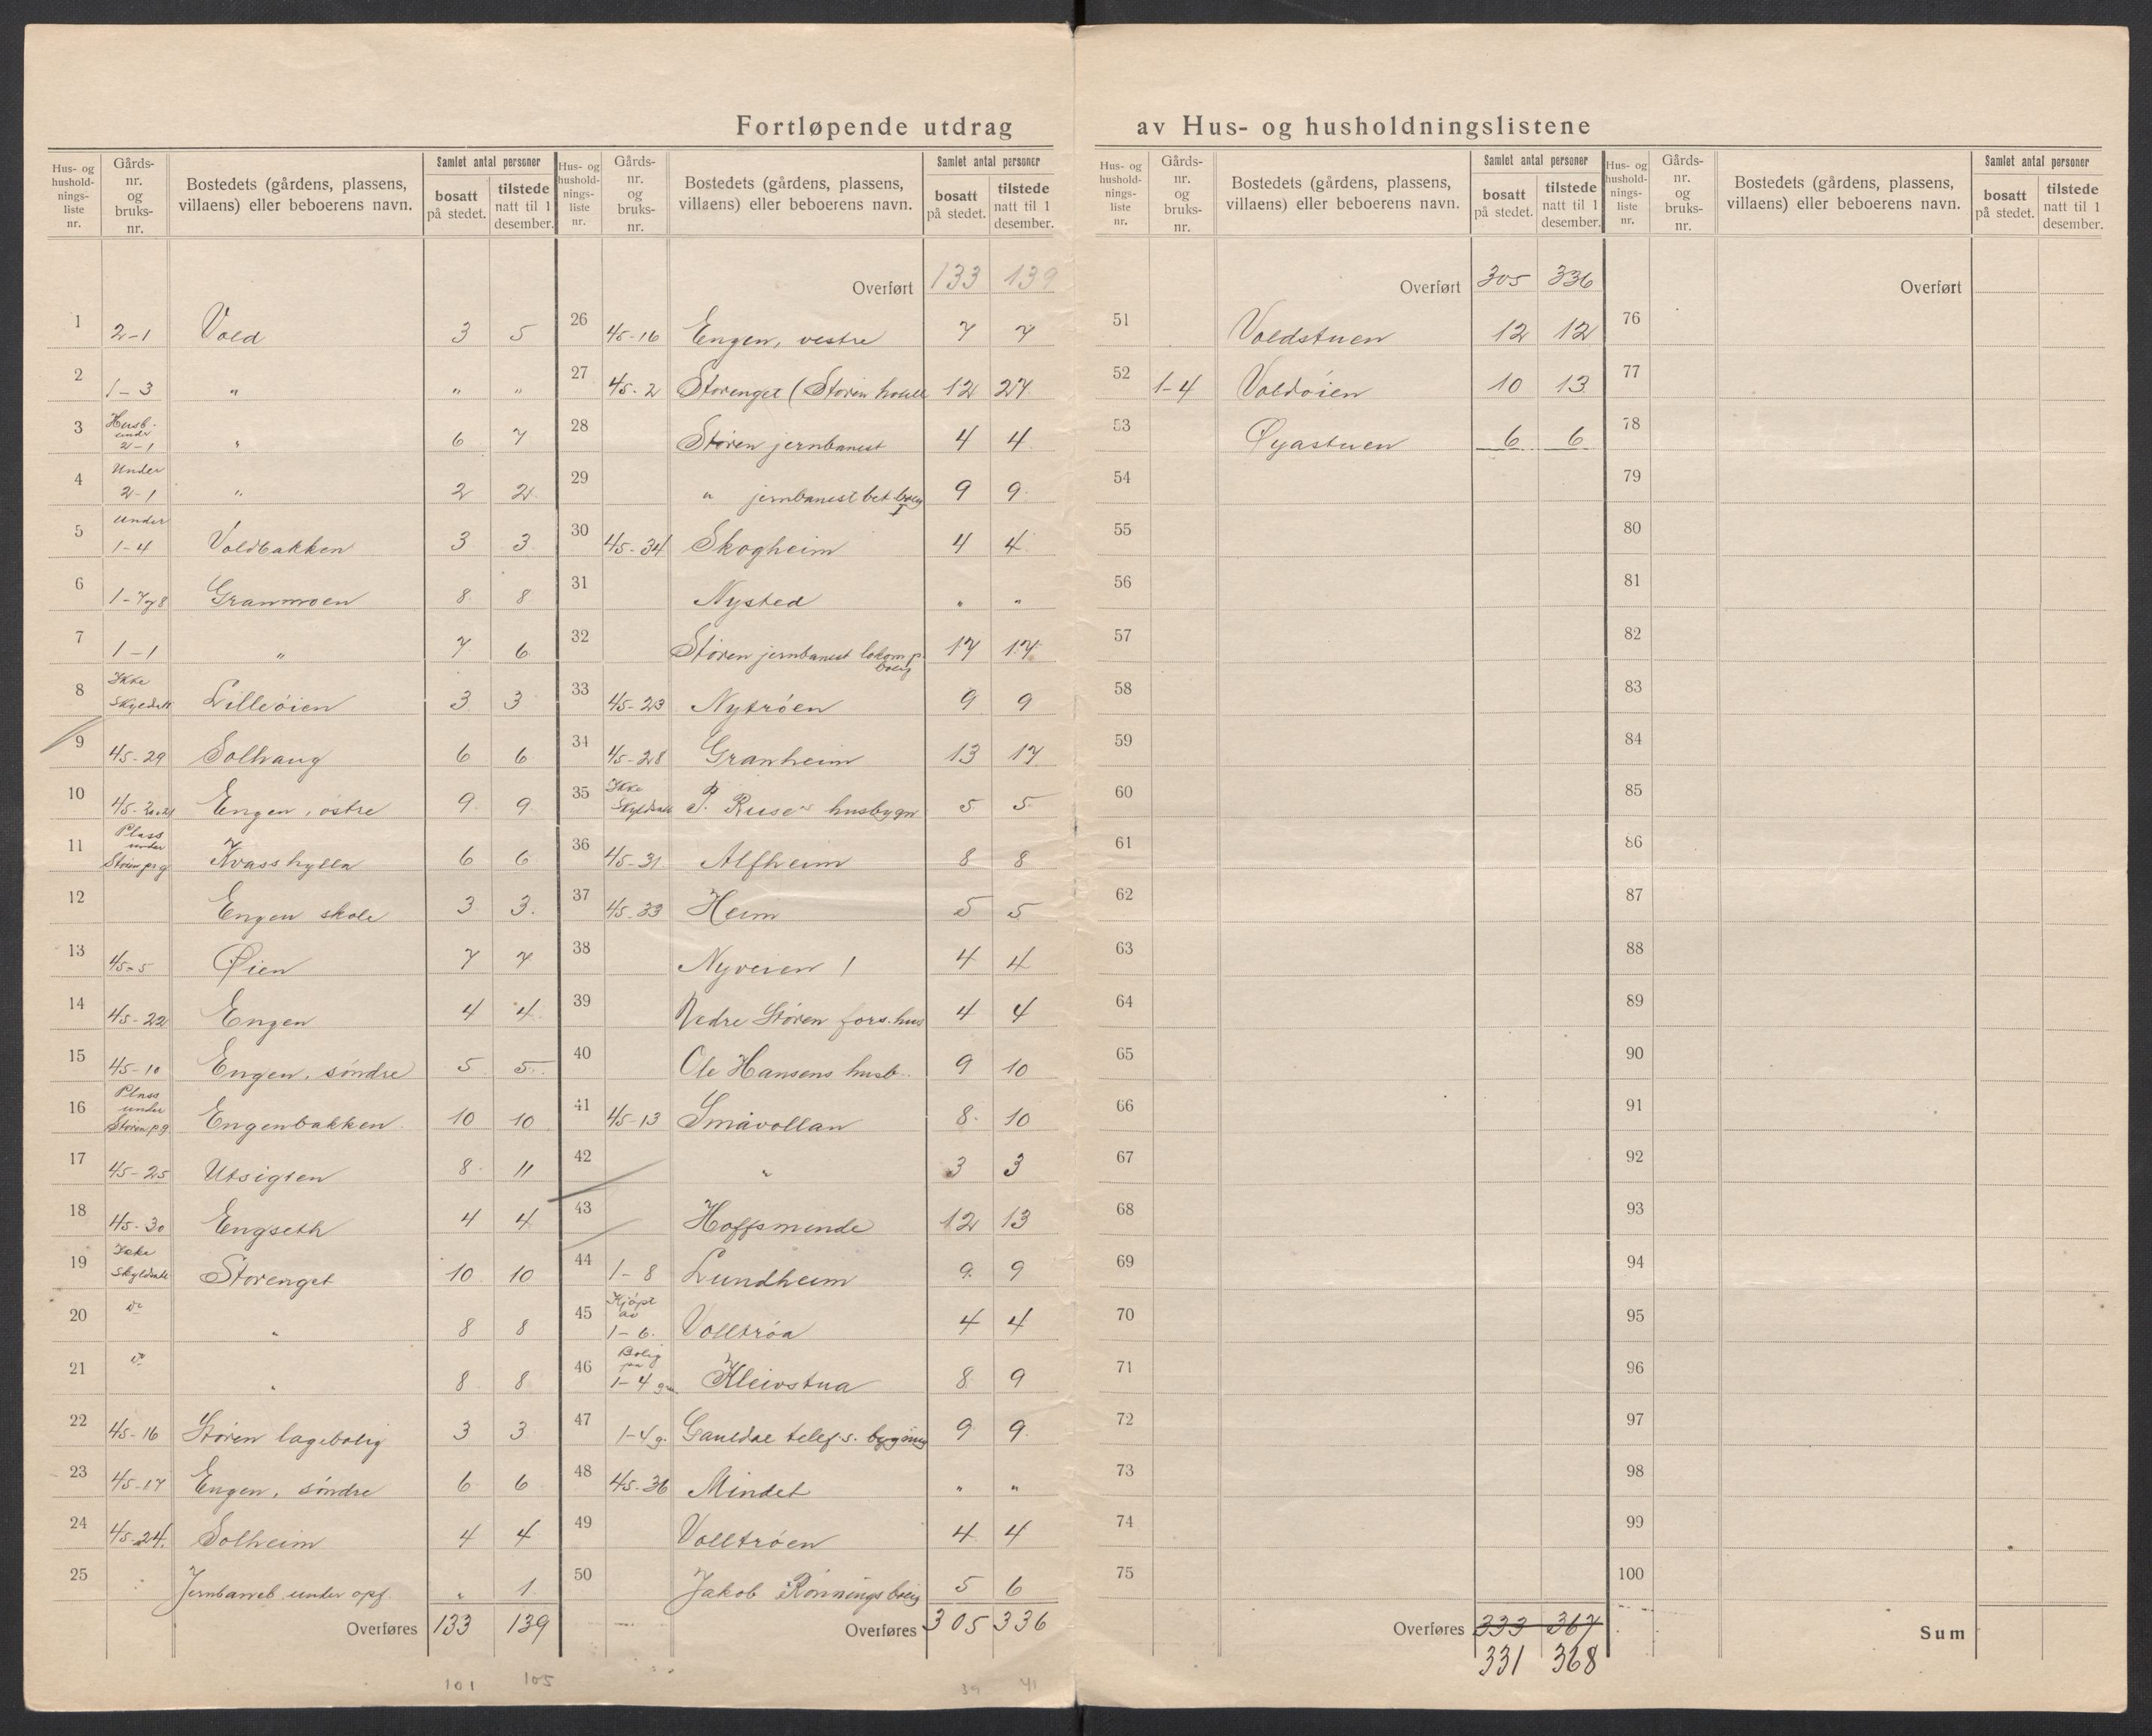 Fortløpende utdrag av Hus- og husholdningslistene
Hus- og hushold- nings- liste nr. | Gårds- nr. og bruks- nr. | Bostedets (gårdens, plassens, villaens) eller beboerens navn. | Samlet antal personer | bosatt på stedet. | tilstede natt til 1 desember.
1 2-1 Vold 3 5
2 1-3 " " "
3 Husb. under 2-1 " 6 7
4 Under 2-1 " 2 2
5 under 1-4 Voldbakken 3 3
6 1-7og8 Granmoen 8 8
7 1-1 " 7 6
8 Ikke Skyldsatt Lilleöien 3 3
9 45-29 Solhaug 6 6
10 45-20.21 Engen, östre 9 9
11 Plass under Støren pr.g Kvasshylla 6 6
12 Engen skole 3 3.
13 45-5 Øien 7 7
14 45-22 Engen 4 4
15 45-10 Engen, söndre 5 5
16 Plass under Støren p.g. Engenbakken 10 10
17 45-25 Utsigten 8 11
18 45-30 Engseth 4 4
19 Ikke Skyldsatt Storenget 10 10
20 do " 8 8
21 do " 8 8
22 45-16 Støren lagebolig 3 3
23 45-17 Engen, söndre 6 6
24 45-24. Solheim 4 4
25 Jernbaneb. under opf. " 1
Overføres 133 139
101 105
Hus- og hushold- nings- liste nr. | Gårds- nr. og bruks- nr. | Bostedets (gårdens, plassens, villaens) eller beboerens navn. | Samlet antal personer | bosatt på stedet. | tilstede natt til 1 desember.
Overført 133 139
26 45-16 Engen, vestre 7 7
27 45-2 Storenget (Støren hotell 12 27
28 Støren jernbanest 4 4
29 " jernbanest bet bolig I 9 9
30 45-34 Skogheim 4 4
31 Nysted " "
32 Støren jernbanest lokom.p. bolig 17 17
33 45-23 Nytröen 9 9
34 45-28 Granheim 13 17
35 Ikke Skyldsatt P. Ruse's husbygn 5 5
36 45-31 Alfheim 8 8
37 45-33 Heim 5 5
38 Nyveien 1 4 4
39 Nedre Støren fors.hus 4 4
40 Ole Hansens husb. 9 10
41 45-13 Småvollan 8 10
42 " 3 3
43 Hoffsminde 12 13
44 1-8 Lundheim 9 9
45 Kjöpt av 1-6. Volltröa 4 4
46 Bolig på 1-4 Kleivstua 8 9
47 1-4 g. Gauldal telef.s. bygning 9 9
48 45-36 Mindet " "
49 Volltröen 4 4
50 Jakob Rönnings bolig 5 6
Overføres 305 336
39 41
Hus- og hushold- nings- liste nr. | Gårds- nr. og bruks- nr. | Bostedets (gårdens, plassens, villaens) eller beboerens navn. | Samlet antal personer | bosatt på stedet. | tilstede natt til 1 desember.
Overført 305 336
51 Voldstuen 12 12
52 1-4 Voldöien 10 13
53 Øyastuen 6 6
54
55
56
57
58
59
60
61
62
63
64
65
66
67
68
69
70
71
72
73
74
75
Overføres 333 367
331 368
Hus- og hushold- nings- liste nr. | Gårds- nr. og bruks- nr. | Bostedets (gårdens, plassens, villaens) eller beboerens navn. | Samlet antal personer | bosatt på stedet. | tilstede natt til 1 desember.
Overført
76
77
78
79
80
81
82
83
84
85
86
87
88
89
90
91
92
93
94
95
96
97
98
99
100
Sum